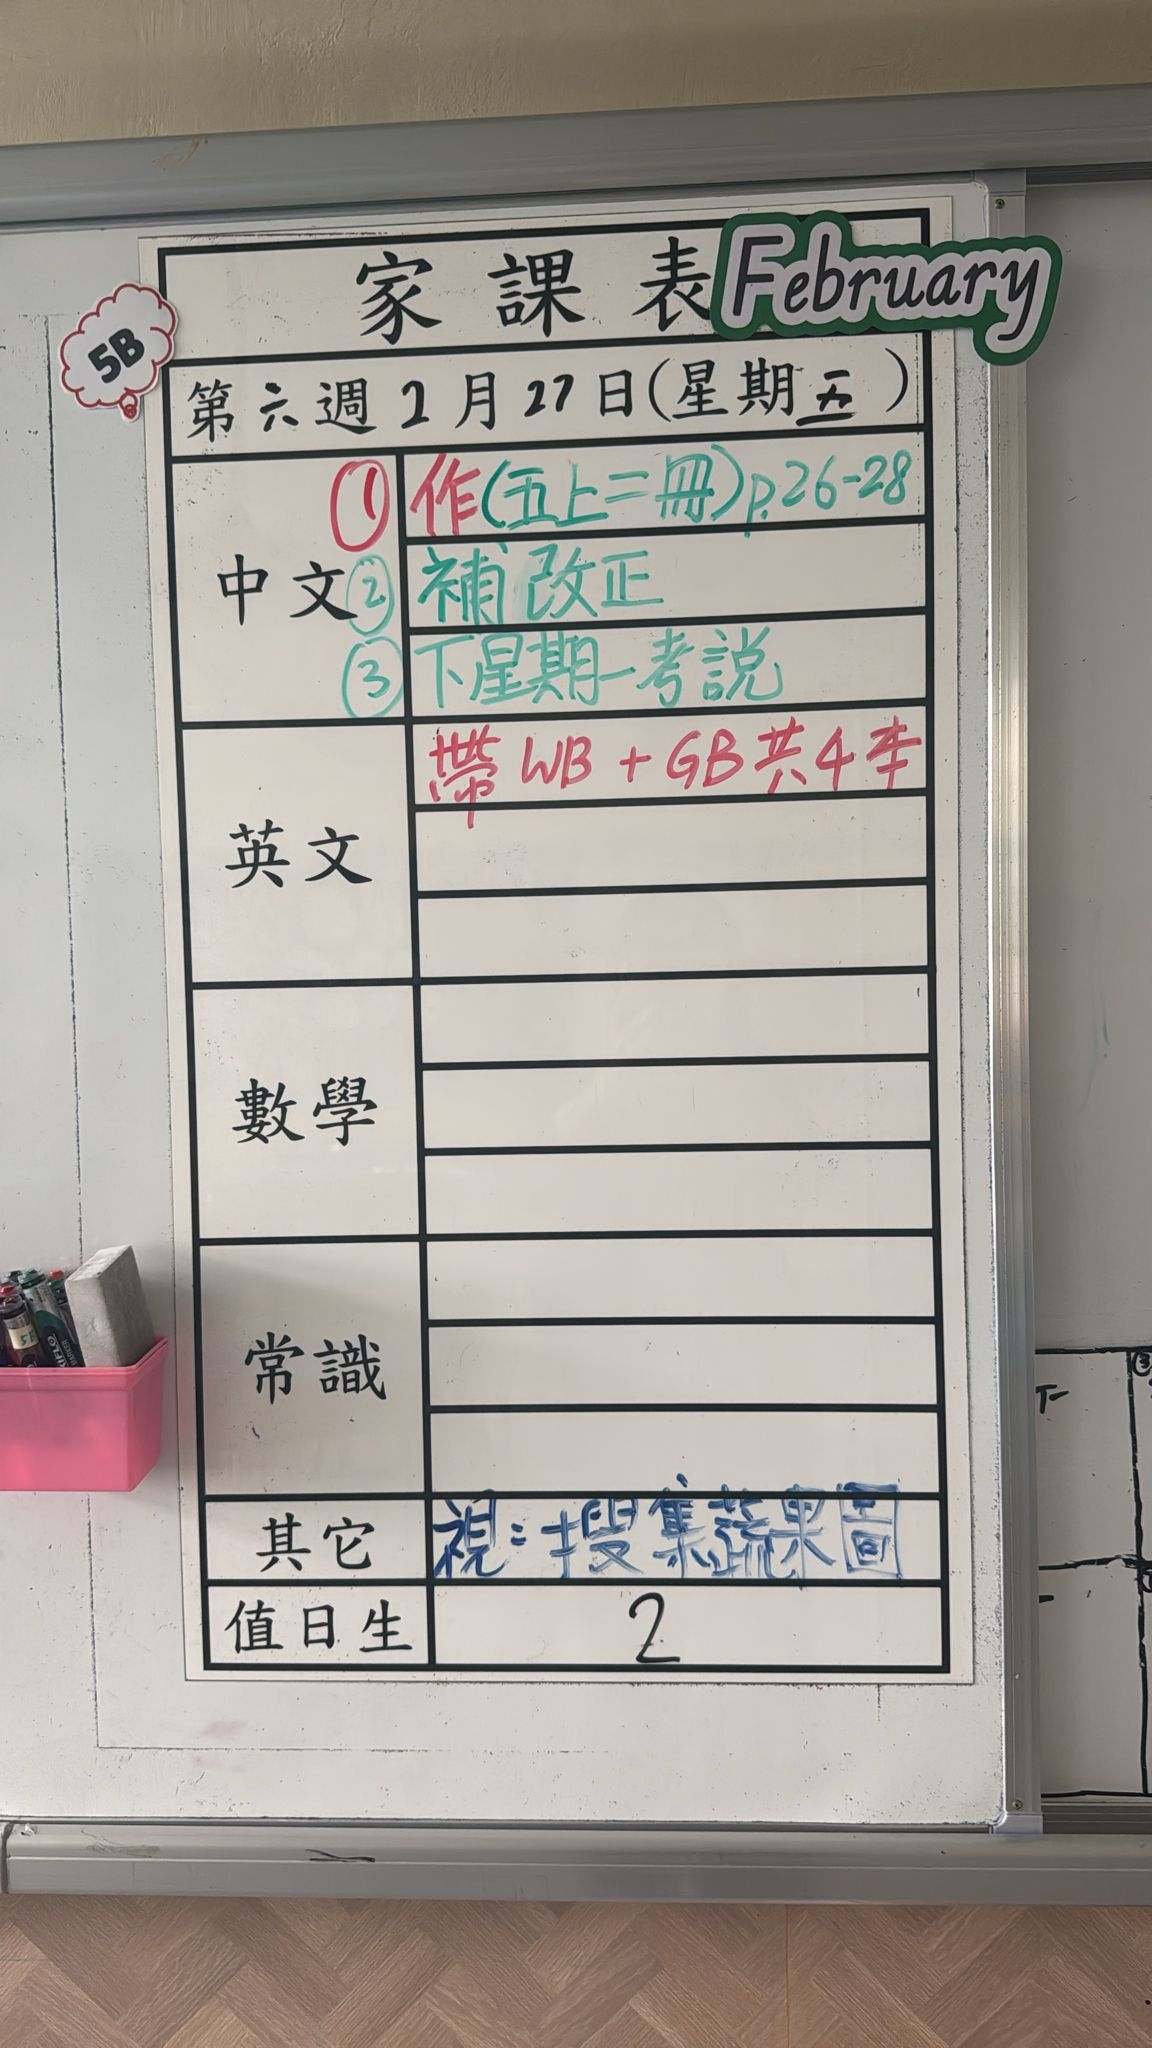 家課表
February
5B
第六週2月27日(星期五)
中文
① 作(五上二冊)p.26-28
② 補改正
③ 下星期一考説
英文
帶 WB + GB 共4本
數學
常識
其它
視:搜集蔬果圖
值日生
2